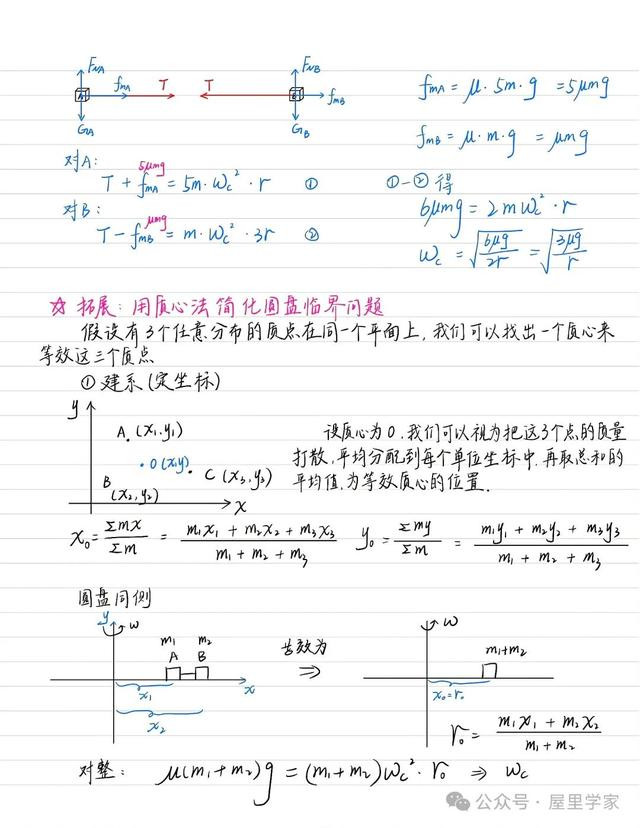 F_NA
f_mA
T
T
F_NB
f_mB
G_A
G_B
f_mA = μ·5m·g = 5μmg
f_mB = μ·m·g = μmg
对A:
5μmg
T + f_mA = 5m·ω_c²·r ①
对B:
μmg
T - f_mB = m·ω_c²·3r ②
①-②得
6μmg = 2mω_c²·r
ω_c = √(6μg/2r) = √(3μg/r)
☆ 拓展: 用质心法简化圆盘临界问题
假设有3个任意分布的质点在同一个平面上, 我们可以找出一个质心来
等效这三个质点
①建系(定坐标)
y
A. (x₁, y₁)
O (x, y)
B
(x₂, y₂)
C (x₃, y₃)
x
设质心为O, 我们可以视为把这3个点的质量
打散, 平均分配到每个单位坐标中, 再取总和的
平均值, 为等效质心的位置.
x₀ = Σmx/Σm = (m₁x₁ + m₂x₂ + m₃x₃)/(m₁ + m₂ + m₃)
y₀ = Σmy/Σm = (m₁y₁ + m₂y₂ + m₃y₃)/(m₁ + m₂ + m₃)
圆盘同侧
y
ω
m₁ m₂
A B
x₁
x₂
x
等效为
⇒
ω
m₁+m₂
x₀=r₀
r₀ = (m₁x₁ + m₂x₂)/(m₁ + m₂)
对整: μ(m₁+m₂)g = (m₁+m₂)ω_c²·r₀ ⇒ ω_c
公众号·屋里学家